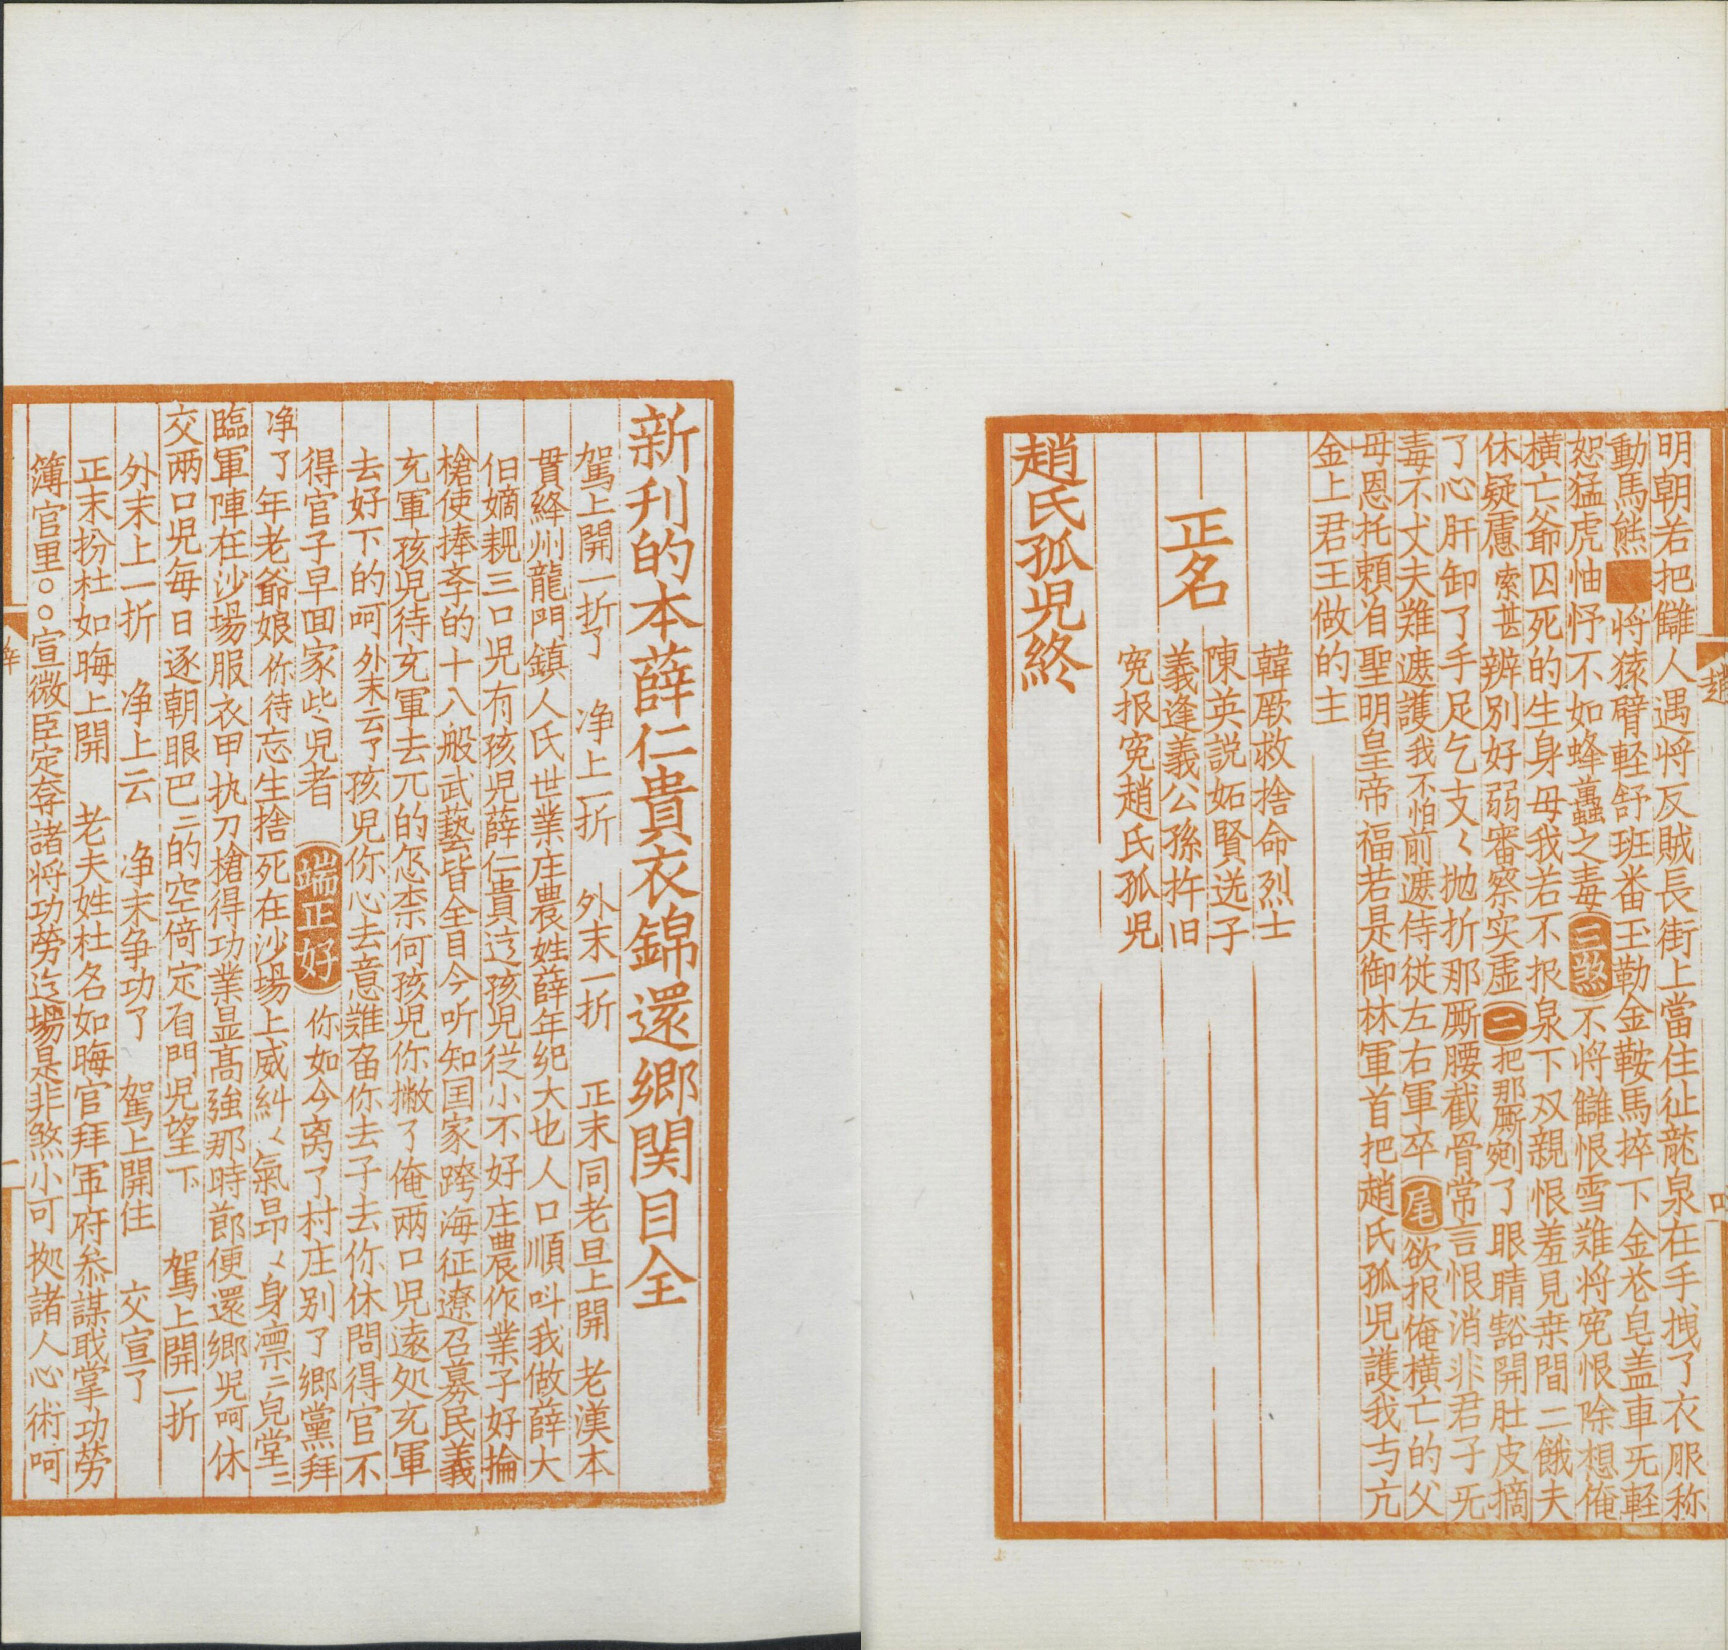 明朝若把讎人遇将反賊長街上當住扯龍泉在手拽了衣服称
動馬熊將猿臂輕舒班番玉勒金鞍馬捽下金花皂盖車旡輕
恕猛虎怞怿不如蜂蠆之毒三煞不将讎恨雪難将寃恨除想俺
横亡爺囚死的生身母我若不报泉下双親恨羞見桒間二餓夫
休疑慮索甚辨別好弱審察实虛二把那厮剜了眼睛豁開肚皮摘
了心肝卸了手足乞支〻抛折那厮腰截骨常言恨消非君子旡
毒不丈夫難遮護我不怕前遮侍従左右軍卒尾欲报俺横亡的父
母恩托頼着聖明皇帝福若是御林軍首把趙氏孤児護我与亢
金上君王做的主
正名
韓厥救捨命烈士
陳英説妬賢送子
義逢義公孫杵旧
寃报寃趙氏孤児
趙氏孤児終
趙
新刋的本薛仁貴衣錦還郷関目全
駕上開一折了 净上一折 外末一折 正末同老旦上開 老漢本
貫絳州龍門鎮人氏世業庄農姓薛年紀大也人口順呌我做薛大
伯嫡親三口児有孩児薛仁貴这孩児従小不好庄農作業子好掄
槍使捧李的十八般武藝皆全自今听知国家跨海征遼召募民義
充軍孩児待充軍去兀的怎柰何孩児你撇了俺两口児遠处充軍
去好下的呵外末云了孩児你心去意難畱你去子去你休問得官不
得官子早囬家些児者端正好你如今离了村庄别了郷黨拜
净了年老爺娘你待忘生捨死在沙場上威糾〻氣昂〻身凛二皃堂二
臨軍陣在沙場服衣甲执刀槍得功業显髙強那時節便還郷児呵休
交两口児毎日逐朝眼巴二的空倚定着門児望下 駕上開一折
外末上一折 净上云 净末争功了 駕上開住 交宣了
正末扮杜如晦上開 老夫姓杜名如晦官拜軍府叅謀戢掌功勞
簿官里○○宣微臣定奪諸将功勞这場是非煞小可拠諸人心術呵